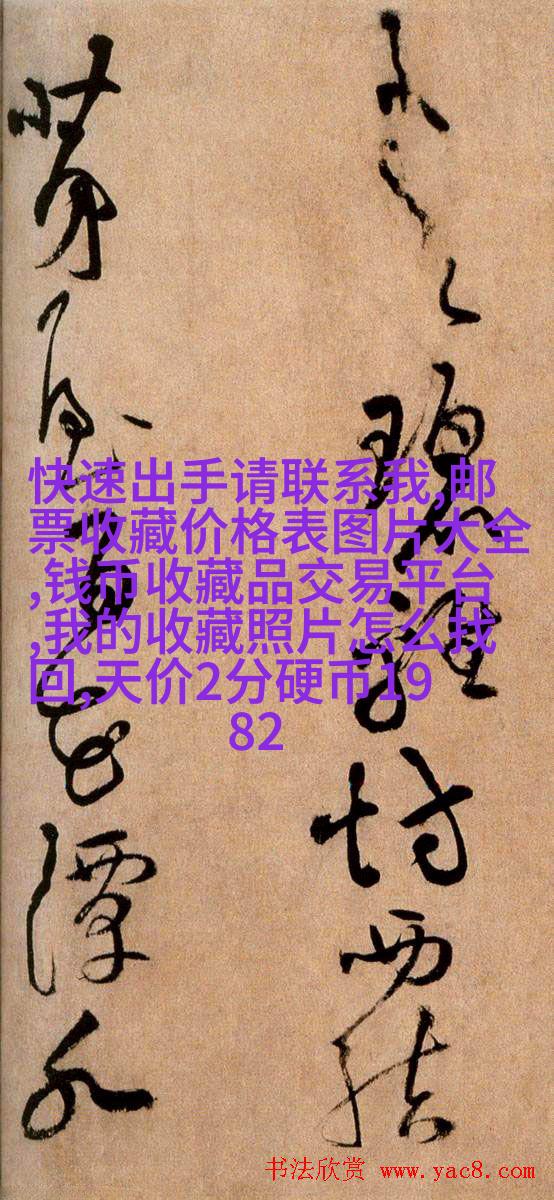 碧雞坊西結
茅屋百花潭水
快速出手请联系我,邮
票收藏价格表图片大全
,钱币收藏品交易平台
,我的收藏照片怎么找
回,天价2分硬币19
82
书法欣赏 www.yac8.com